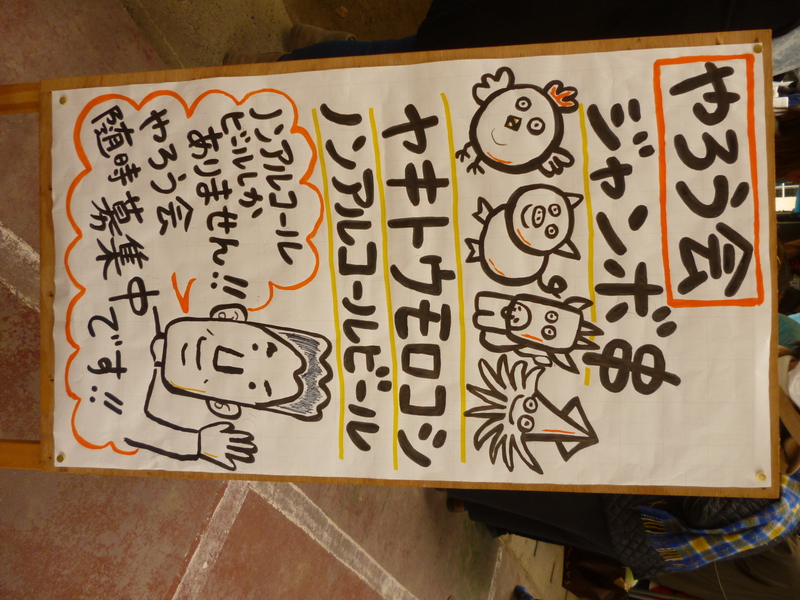 やろう会
ジャンボ串
ヤキトウモロコシ
ノンアルコールビール
ノンアルコール
ビールしか
ありません!!
やろう会
随時募集中です!!